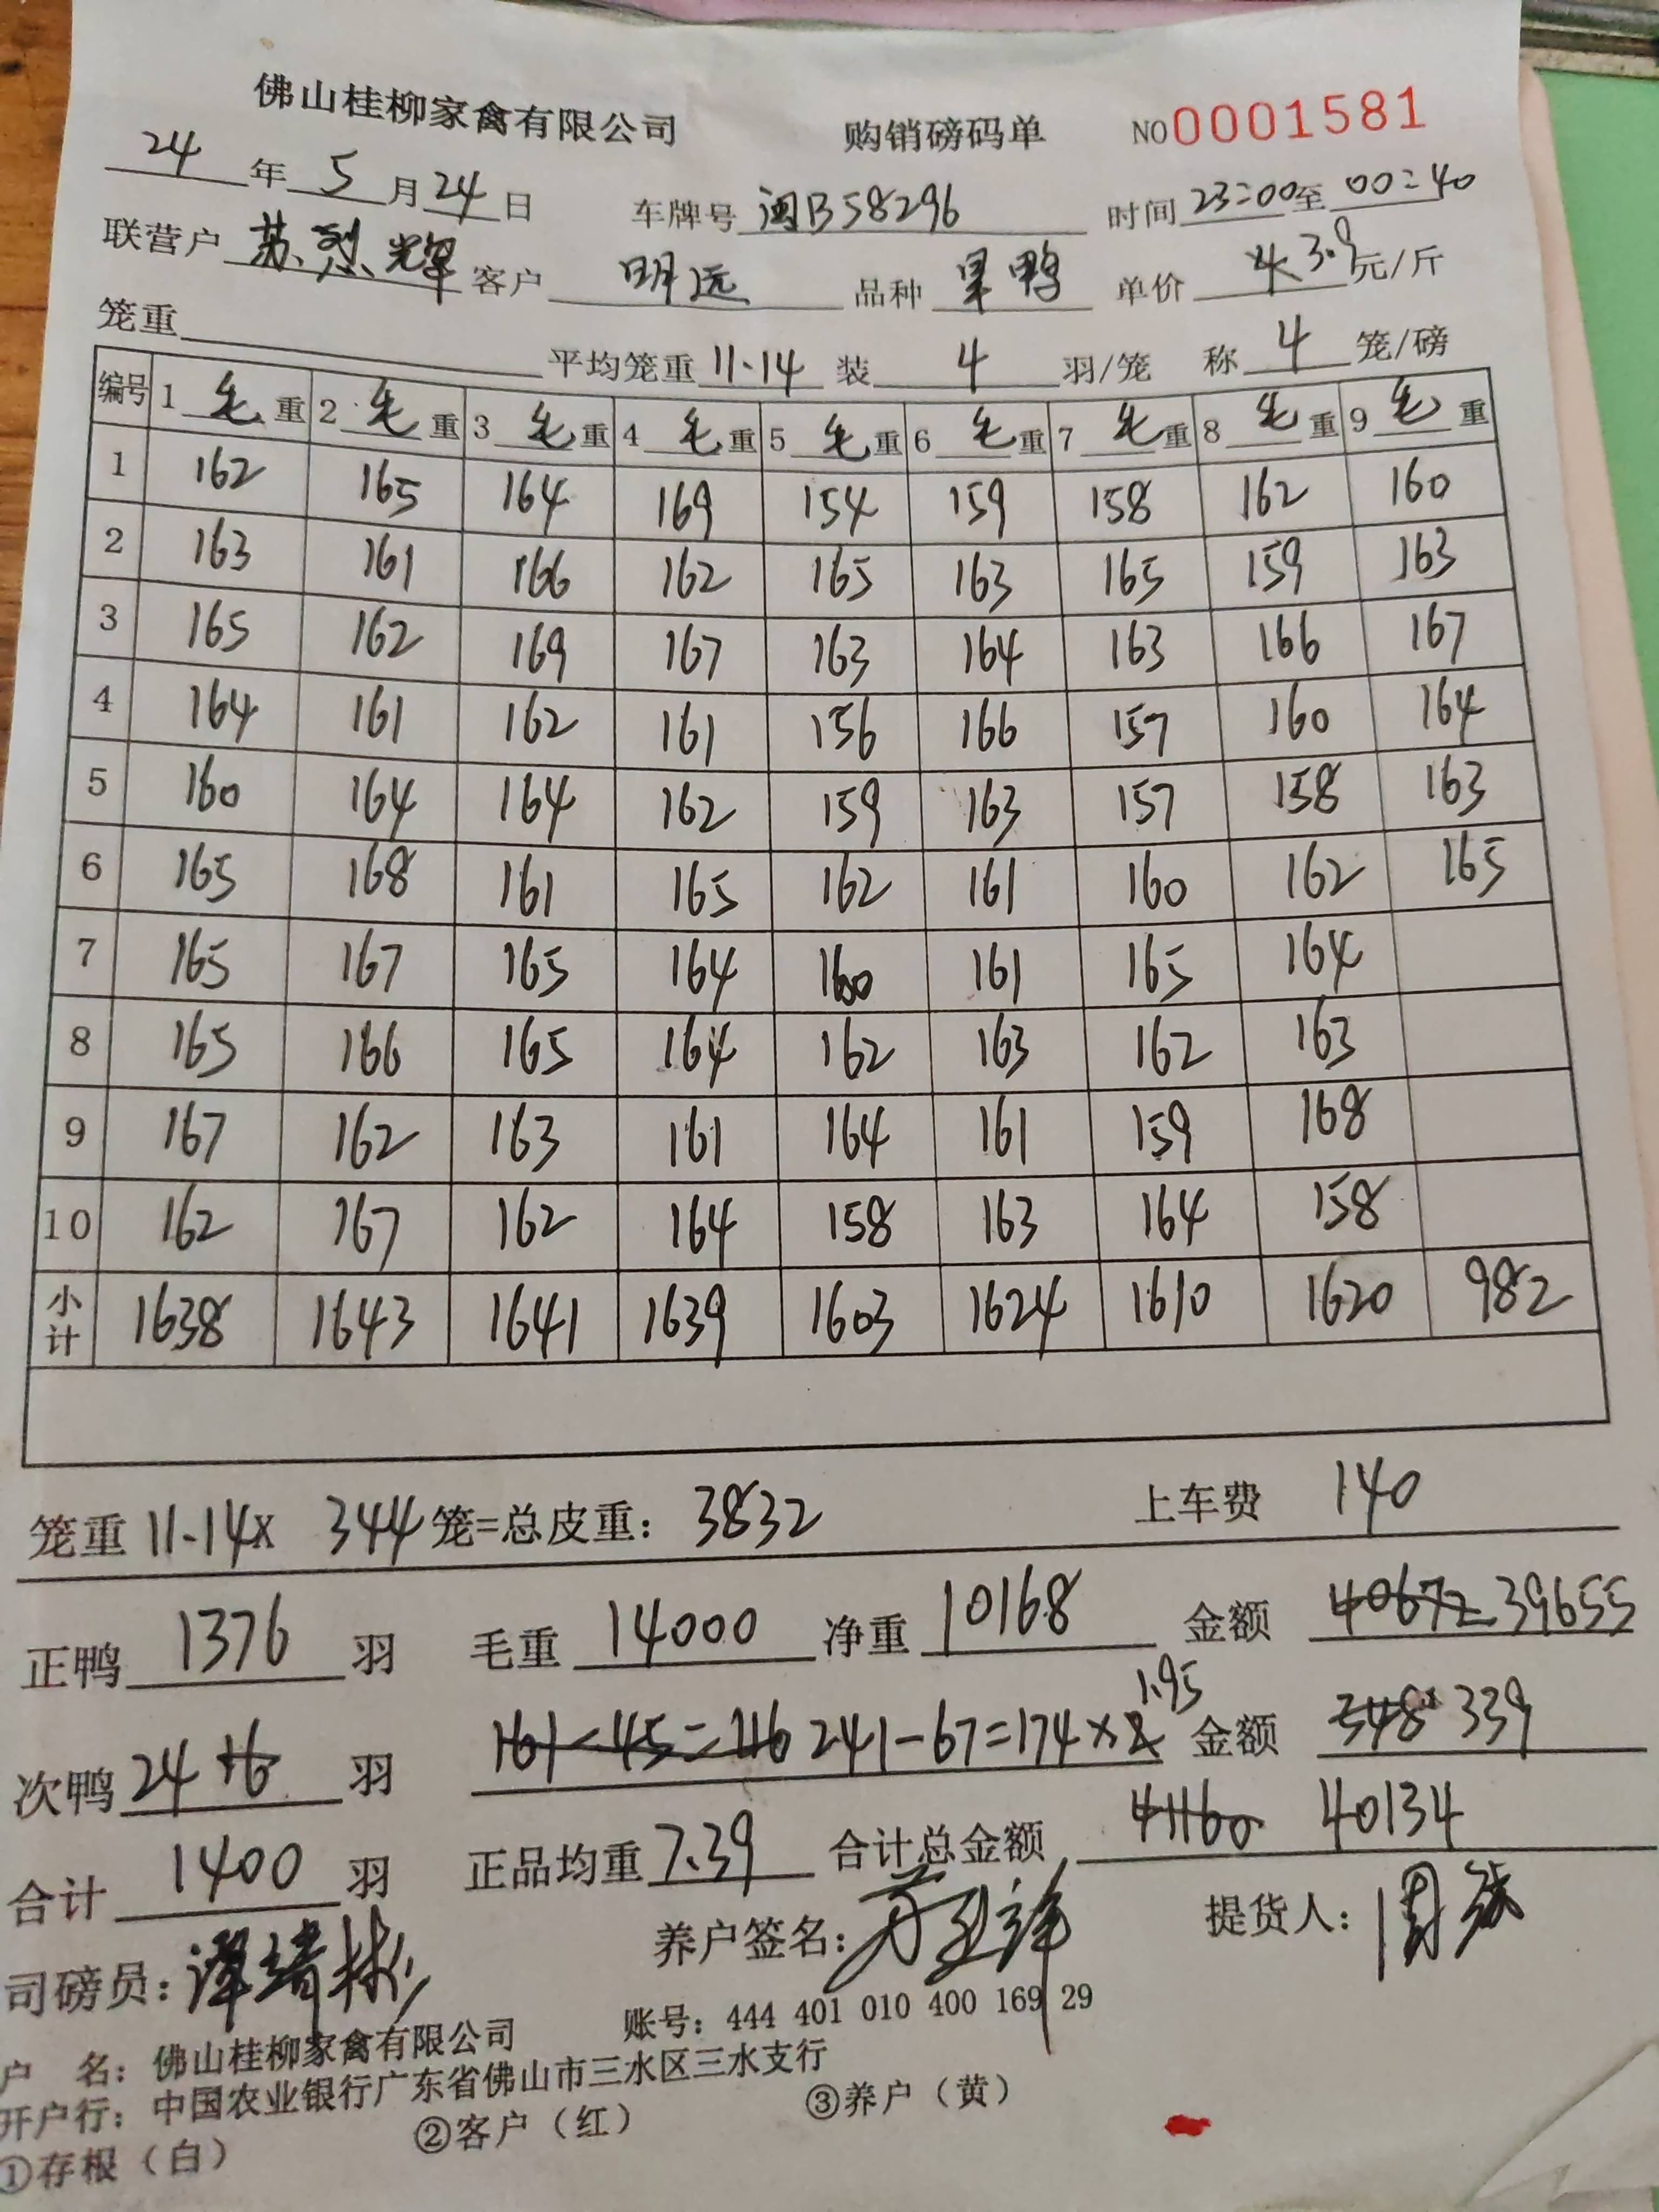 佛山桂柳家禽有限公司 购销磅码单 NO0001581
24年5月24日 车牌号 闽B58296 时间 23:00至00:40
联营户 苏烈辉 客户 明远 品种 果鸭 单价 4 3.9元/斤
笼重 平均笼重 11.14 装 4 羽/笼 称 4 笼/磅
编号 1 毛重 2 毛重 3 毛重 4 毛重 5 毛重 6 毛重 7 毛重 8 毛重 9 毛重
1 162 165 164 169 154 159 158 162 160
2 163 161 166 162 165 163 165 159 163
3 165 162 169 167 163 164 163 166 167
4 164 161 162 161 156 166 157 160 164
5 160 164 164 162 159 163 157 158 163
6 165 168 161 165 162 161 160 162 165
7 165 167 165 164 160 161 165 164
8 165 166 165 164 162 163 162 163
9 167 162 163 161 164 161 159 168
10 162 167 162 164 158 163 164 158
小计 1638 1643 1641 1639 1603 1624 1610 1620 982
笼重 11.14x 344 笼=总皮重: 3832 上车费 140
正鸭 1376 羽 毛重 14000 净重 10168 金额 40672 39655
次鸭 24 +6 羽 161-45=116 241-67=174×2 1.95 金额 348 339
合计 1400 羽 正品均重 7.39 合计总金额 41160 40134
司磅员: 养户签名: 提货人:
户 名: 佛山桂柳家禽有限公司 账号: 444 401 010 400 169 29
开户行: 中国农业银行广东省佛山市三水区三水支行
①存根（白） ②客户（红） ③养户（黄）